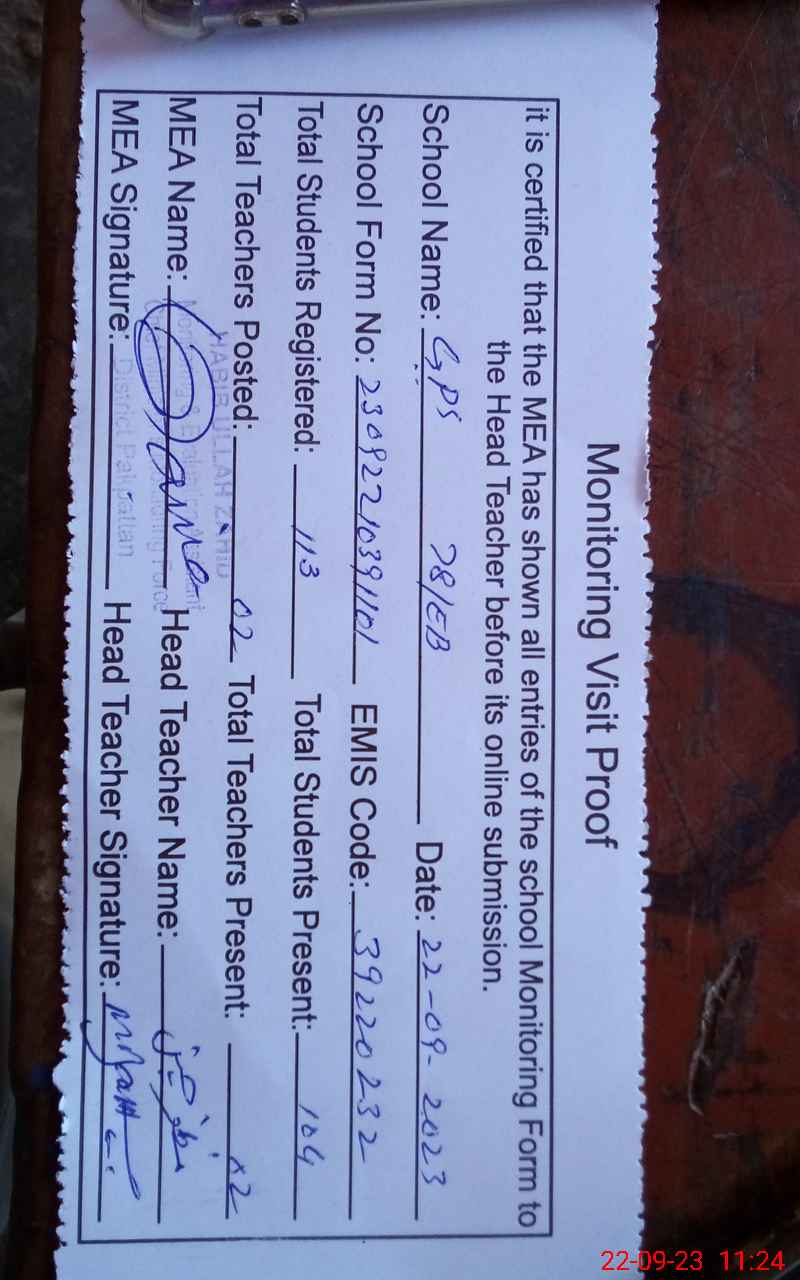 Monitoring Visit Proof
it is certified that the MEA has shown all entries of the school Monitoring Form to
the Head Teacher before its online submission.
School Name: GPS 78/EB Date: 22-09-2023
School Form No: 23092210391101 EMIS Code: 39220232
Total Students Registered: 113 Total Students Present: 104
Total Teachers Posted: 02 Total Teachers Present: 02
MEA Name: Head Teacher Name:
MEA Signature: Head Teacher Signature:
HABIB ULLAH ZAHID
District Pakpattan
22-09-23 11:24